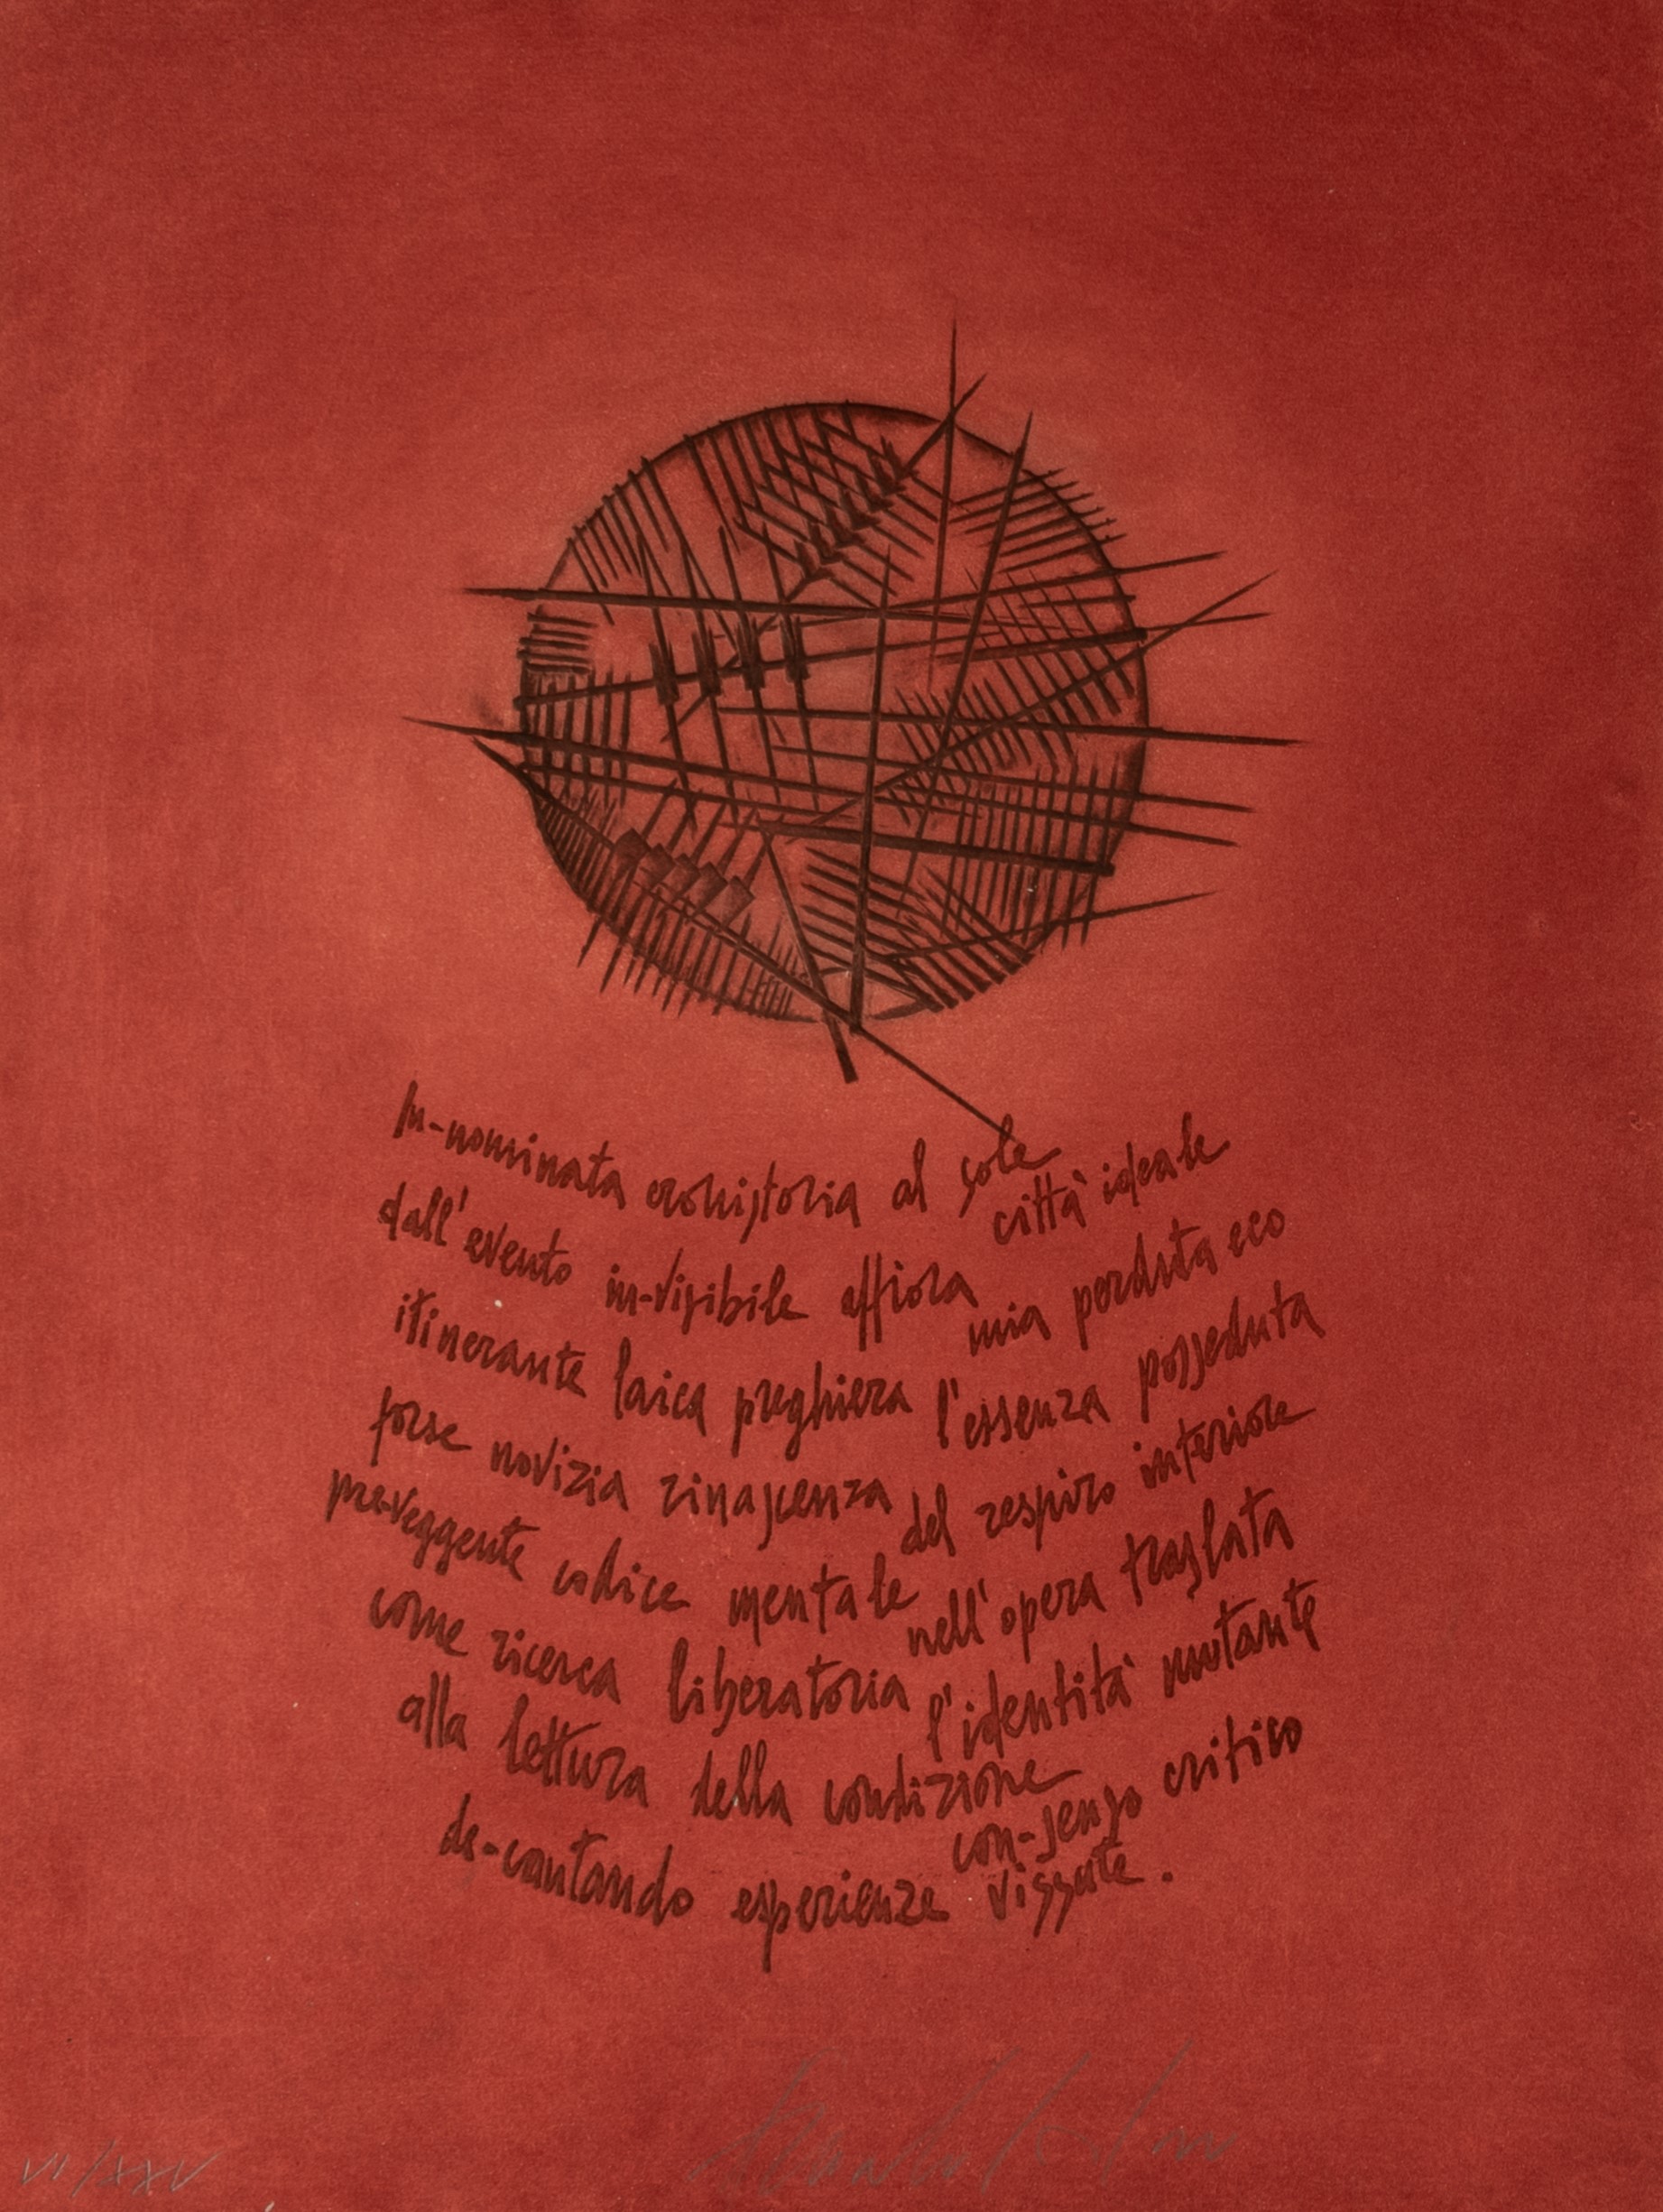 In-nominata crohistoria al sole città ideale
dall'evento in-visibile affiora mia perduta eco
itinerante laica preghiera l'essenza posseduta
forse novizia rinascenza del respiro interiore
pre-veggente codice mentale nell'opera traslata
come ricerca liberatoria l'identità mutante
alla lettura della condizione con-senso critico
de-cantando esperienze vissute.
VI/XXV